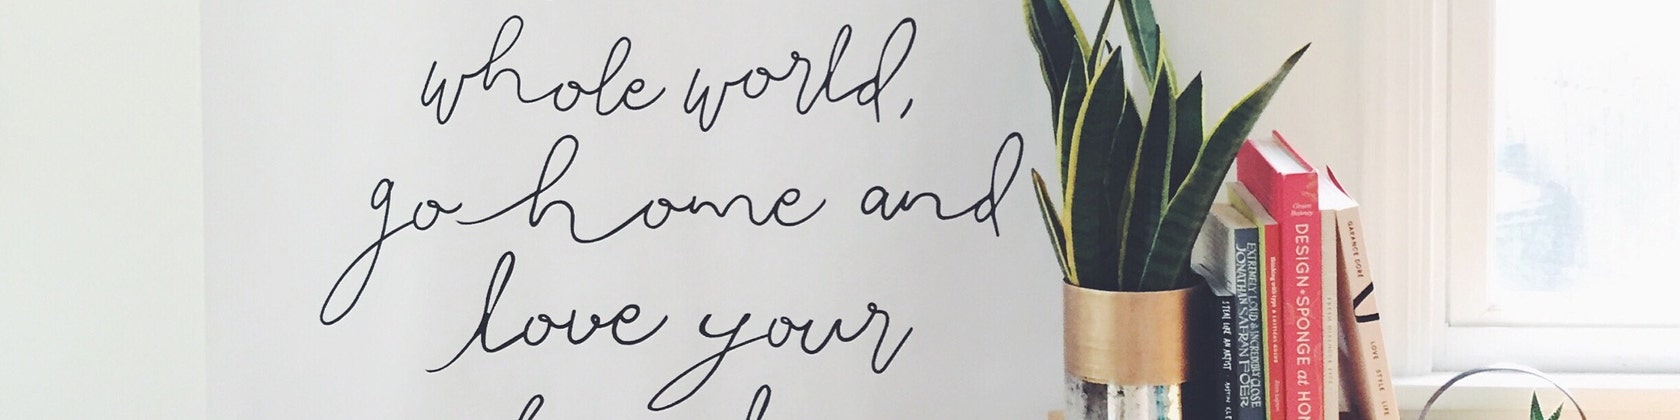 whole world,
go home and
love your
EXTREMELY LOUD & INCREDIBLY CLOSE
JONATHAN SAFRAN FOER
STEAL LIKE AN ARTIST
thinking with type
Grace Bonney
DESIGN*SPONGE at HO
GARANCE DORÉ
LOVE STYLE LIFE